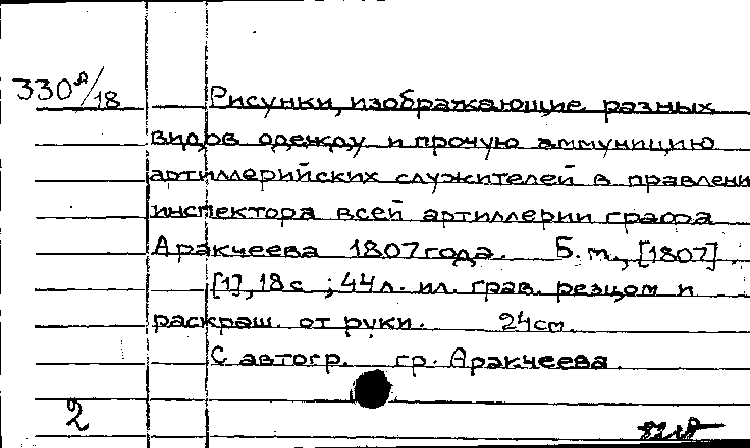 330А/18
Рисунки, изображающие разных
видов одежду и прочую аммуницию
артиллерийских служителей в правлени
инспектора всей артиллерии графа
Аракчеева 1807 года. Б.м., [1807].
[1], 18 с ; 44 л. ил. грав. резцом и
раскраш. от руки. 24 см.
С автогр. гр. Аракчеева.
2